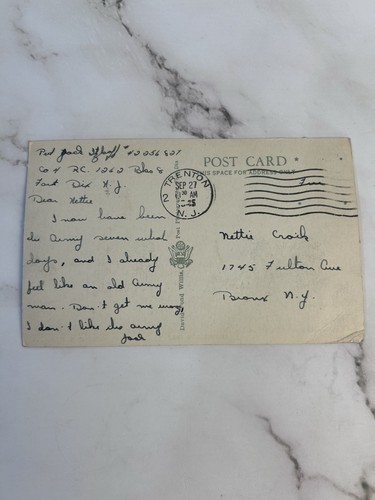 Pvt Jack # 42256827
Co 4 RC. 1262 Bks 8
Fort Dix N.J.
Dear Nettie
I now have been
in Army seven whole
days, and I already
feel like an old Army
man. Don't get me wrong,
I don't like the army
Jack
POST CARD
THIS SPACE FOR ADDRESS ONLY
TRENTON
2
SEP 27
10 AM
1945
N. J.
Free
Nettie Craib
1745 Fulton Ave
Bronx N.Y.